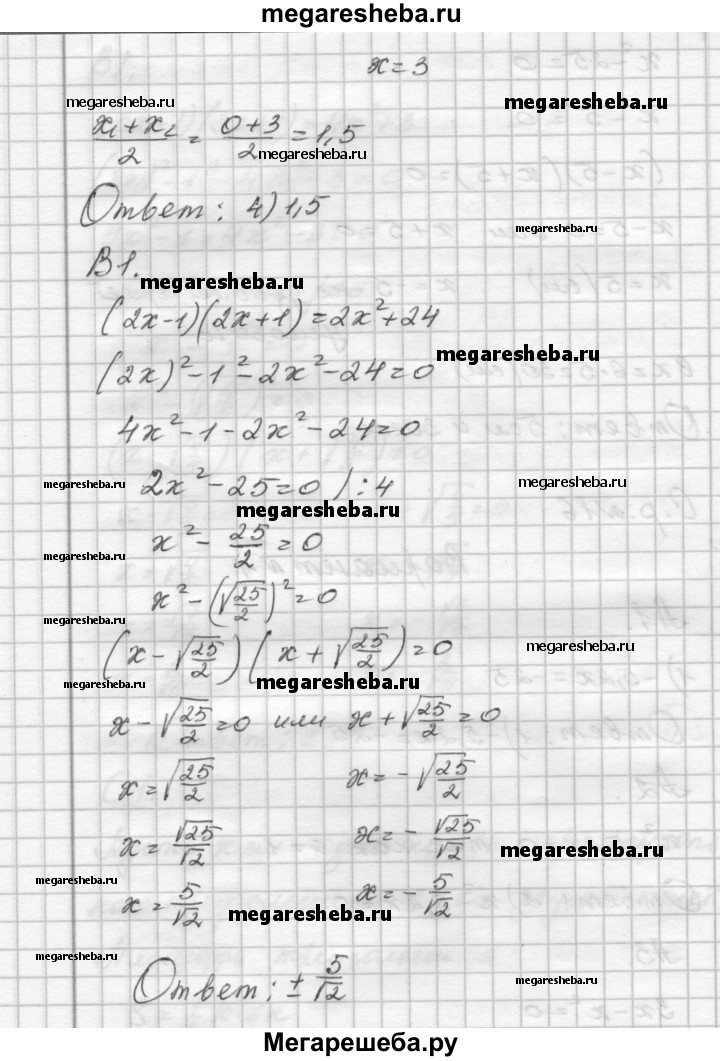 megaresheba.ru
x = 3
megaresheba.ru megaresheba.ru
(x₁ + x₂)/2 = (0 + 3)/2 = 1,5
megaresheba.ru
Ответ: 4) 1,5
megaresheba.ru
В1.
megaresheba.ru
(2x-1)(2x+1) = 2x² + 24
megaresheba.ru
(2x)² - 1² - 2x² - 24 = 0
4x² - 1 - 2x² - 24 = 0
megaresheba.ru 2x² - 25 = 0 / : 4 megaresheba.ru
megaresheba.ru
x² - 25/2 = 0
megaresheba.ru
x² - (√(25/2))² = 0
megaresheba.ru
(x - √(25/2))(x + √(25/2)) = 0
megaresheba.ru
megaresheba.ru megaresheba.ru
x - √(25/2) = 0 или x + √(25/2) = 0
x = √(25/2) x = -√(25/2)
x = √25/√2 x = - √25/√2
megaresheba.ru
megaresheba.ru
x = 5/√2 x = - 5/√2
megaresheba.ru
megaresheba.ru
Ответ: ± 5/√2
megaresheba.ru
Мегарешеба.ру